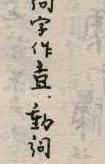 字作直.動詞